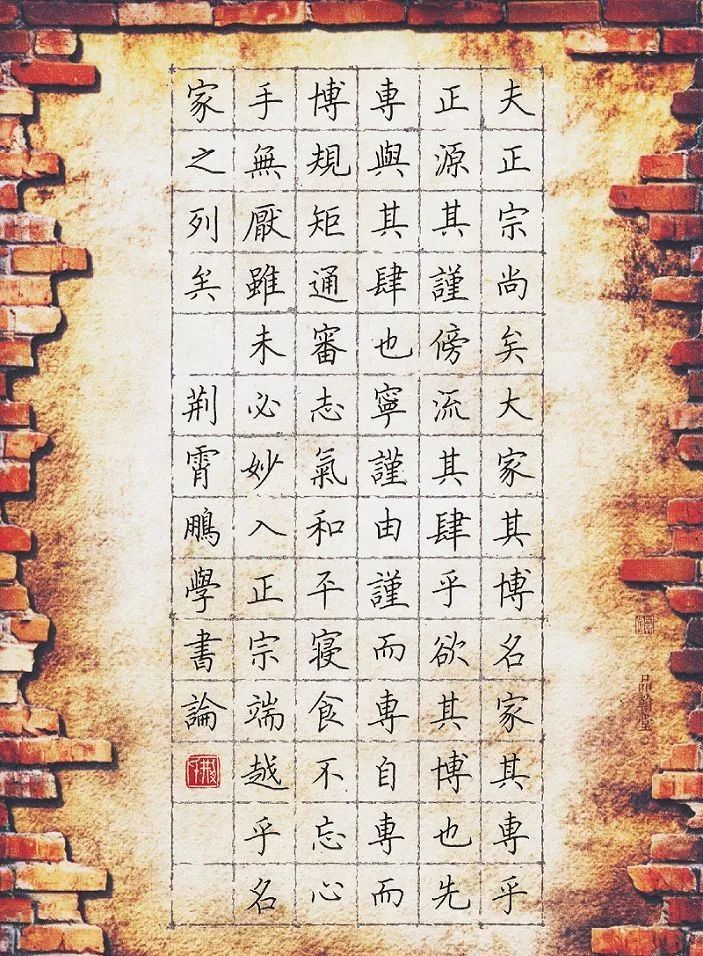 夫正宗尚矣大家其博名家其專乎
正源其謹傍流其肆乎欲其博也先
専與其肆也寧謹由謹而専自専而
博規矩通審志氣和平寝食不忘心
手無厭雖未必妙入正宗端越乎名
家之列矣 荆霄鵬學書論